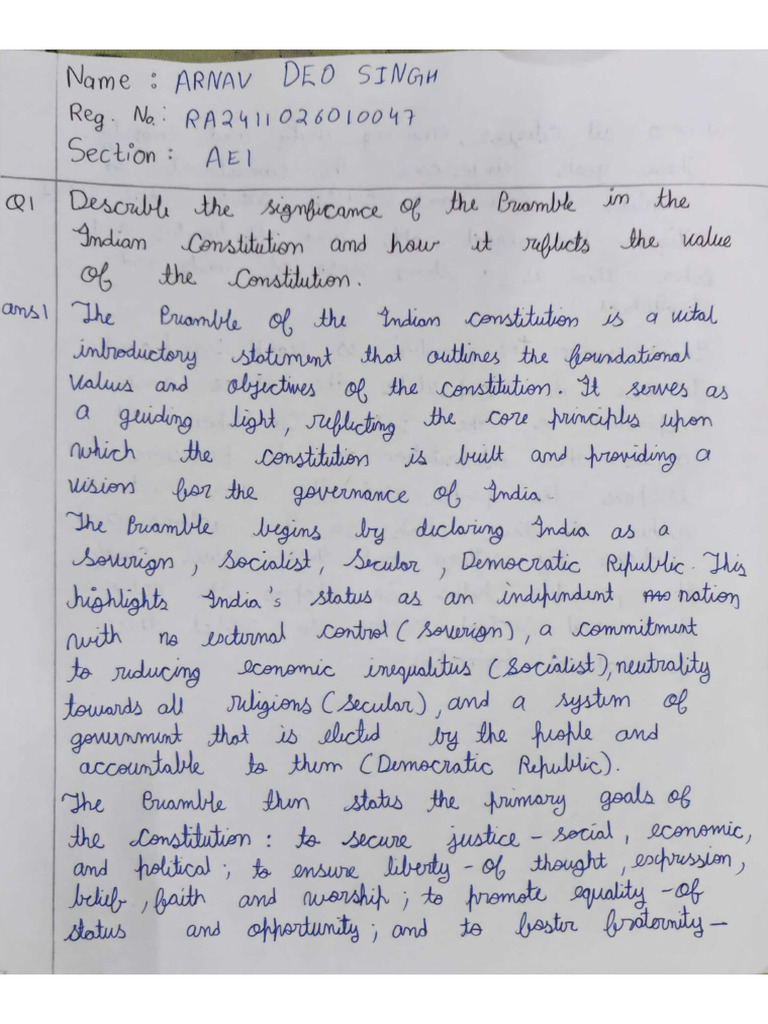 Name : ARNAV DEO SINGH
Reg. No.: RA2411026010047
Section : AE1
Q1 Describle the signficance of the Preamble in the
Indian Constitution and how it reflects the value
of the Constitution.
ans1 The Preamble of the Indian constitution is a vital
introductory statement that outlines the foundational
values and objectives of the constitution. It serves as
a guiding light, reflecting the core principles upon
which the constitution is built and providing a
vision for the governance of India.
The Preamble begins by declaring India as a
Soverign, Socialist, Secular, Democratic Republic. This
highlights India's status as an independent nation
with no external control (Soverign), a commitment
to reducing economic inequalities (Socialist), neutrality
towards all religions (Secular), and a system of
government that is elected by the people and
accountable to them (Democratic Republic).
The Preamble then states the primary goals of
the Constitution: to secure justice – social, economic,
and political; to ensure liberty – of thought, expression,
belief, faith and worship; to promote equality – of
status and opportunity; and to foster fraternity –